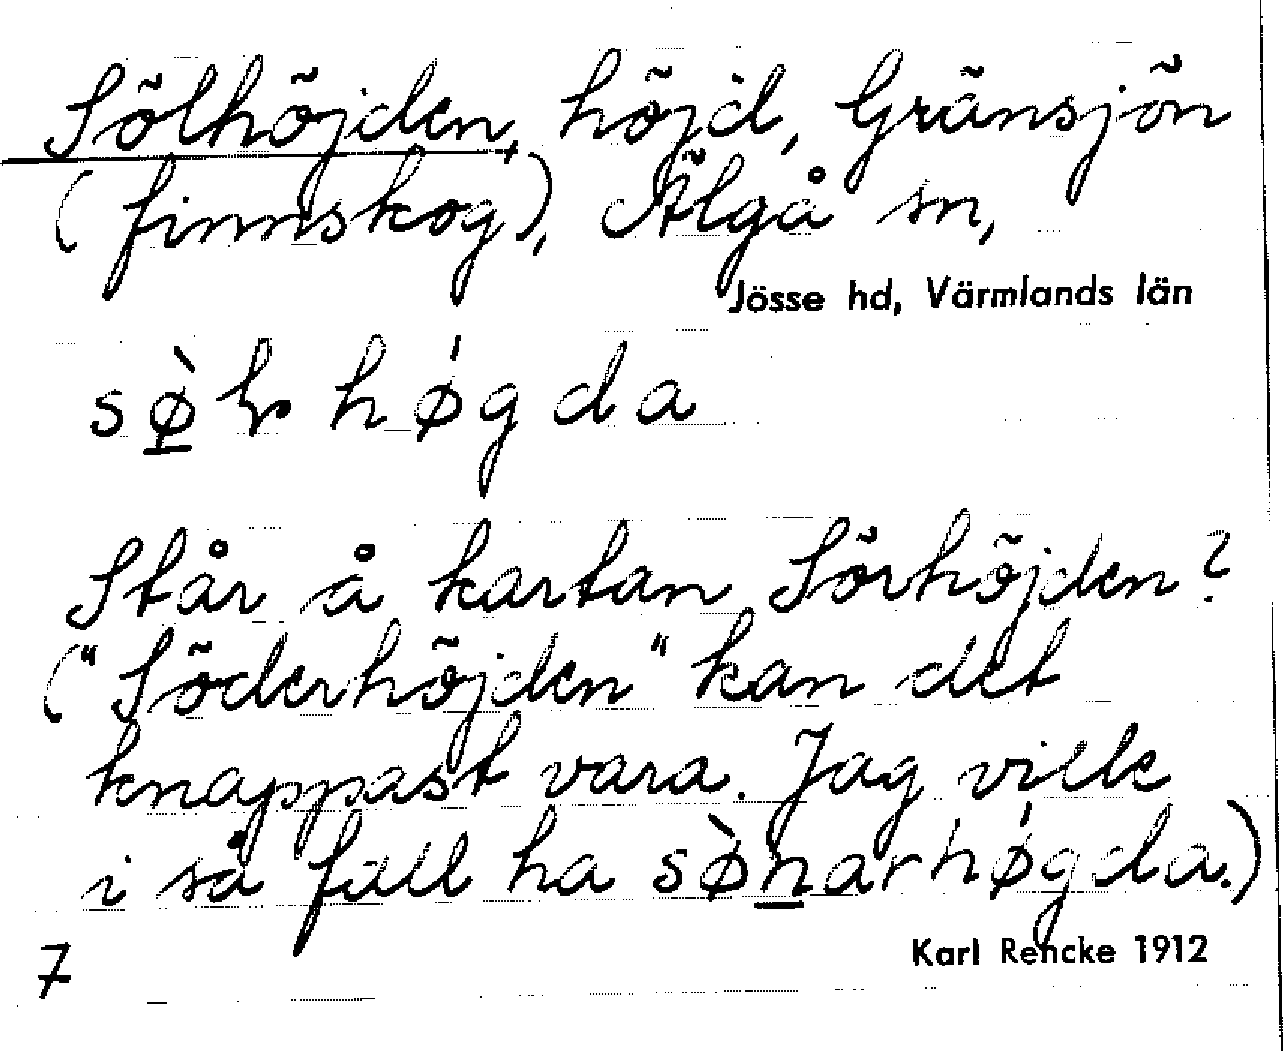 Sölhöjden, höjd, Gränsjön
(finnskog), Älgå sn,
Jösse hd, Värmlands län
Står å kartan Sörhöjden?
("Söderhöjden" kan det
knappast vara. Jag ville
i så fall ha sø̀narhǿgda.)
7
Karl Rencke 1912